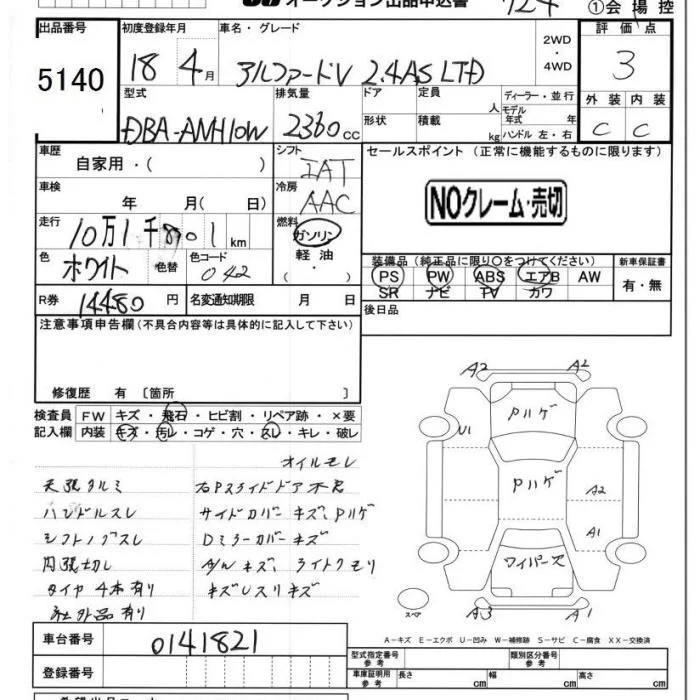 オークション出品申込書
724
①会場控
出品番号
5140
初度登録年月
18 4月
車名・グレード
アルファードV 2.4AS LTD
2WD
・
4WD
評価点
3
型式
DBA-ANH10W
排気量
2360cc
ドア
形状
定員
人
積載
kg
ディーラー・並行
モデル
年式 年
ハンドル 左・右
外装
内装
C
C
車歴
自家用・( )
シフト
IAT
セールスポイント (正常に機能するものに限ります)
NOクレーム・売切
車検
年 月( 日)
冷房
AAC
走行
10万1千801km
燃料
ガソリン
軽油
( ・ )
色
ホワイト
色替
色コード
042
装備品 (純正品に限り○をつけてください)
PS PW ABS エアB AW
SR ナビ TV カワ
新車保証書
有・無
R券
14480円
名変通知期限 月 日
後日品
注意事項申告欄(不具合内容等は具体的に記入して下さい)
修復歴 有 〔箇所 〕
検査員
記入欄
FW キズ・飛石・ヒビ割・リペア跡・×要
内装 キズ・汚レ・コゲ・穴・スレ・キレ・破レ
オイルモレ
天張タルミ
右Pスライドドア不良
ハンドルスレ
サイドカバーキズ、Pハゲ
シフトノブスレ
Dミラーカバーキズ
A/Wキズ、ライトクモリ
タイヤ4本有り
社外品有り
A2
A2
Pハゲ
U1
Pハゲ
A2
A1
ワイパーキズ
スペア
A3
A1
A-キズ E-エクボ U-凹み W-補修跡 S-サビ C-腐食 XX-交換済
車台番号
0141821
登録番号
型式指定番号
参考
類別区分番号
参考
車庫証明用
参考
長さ cm
幅 cm
高さ cm